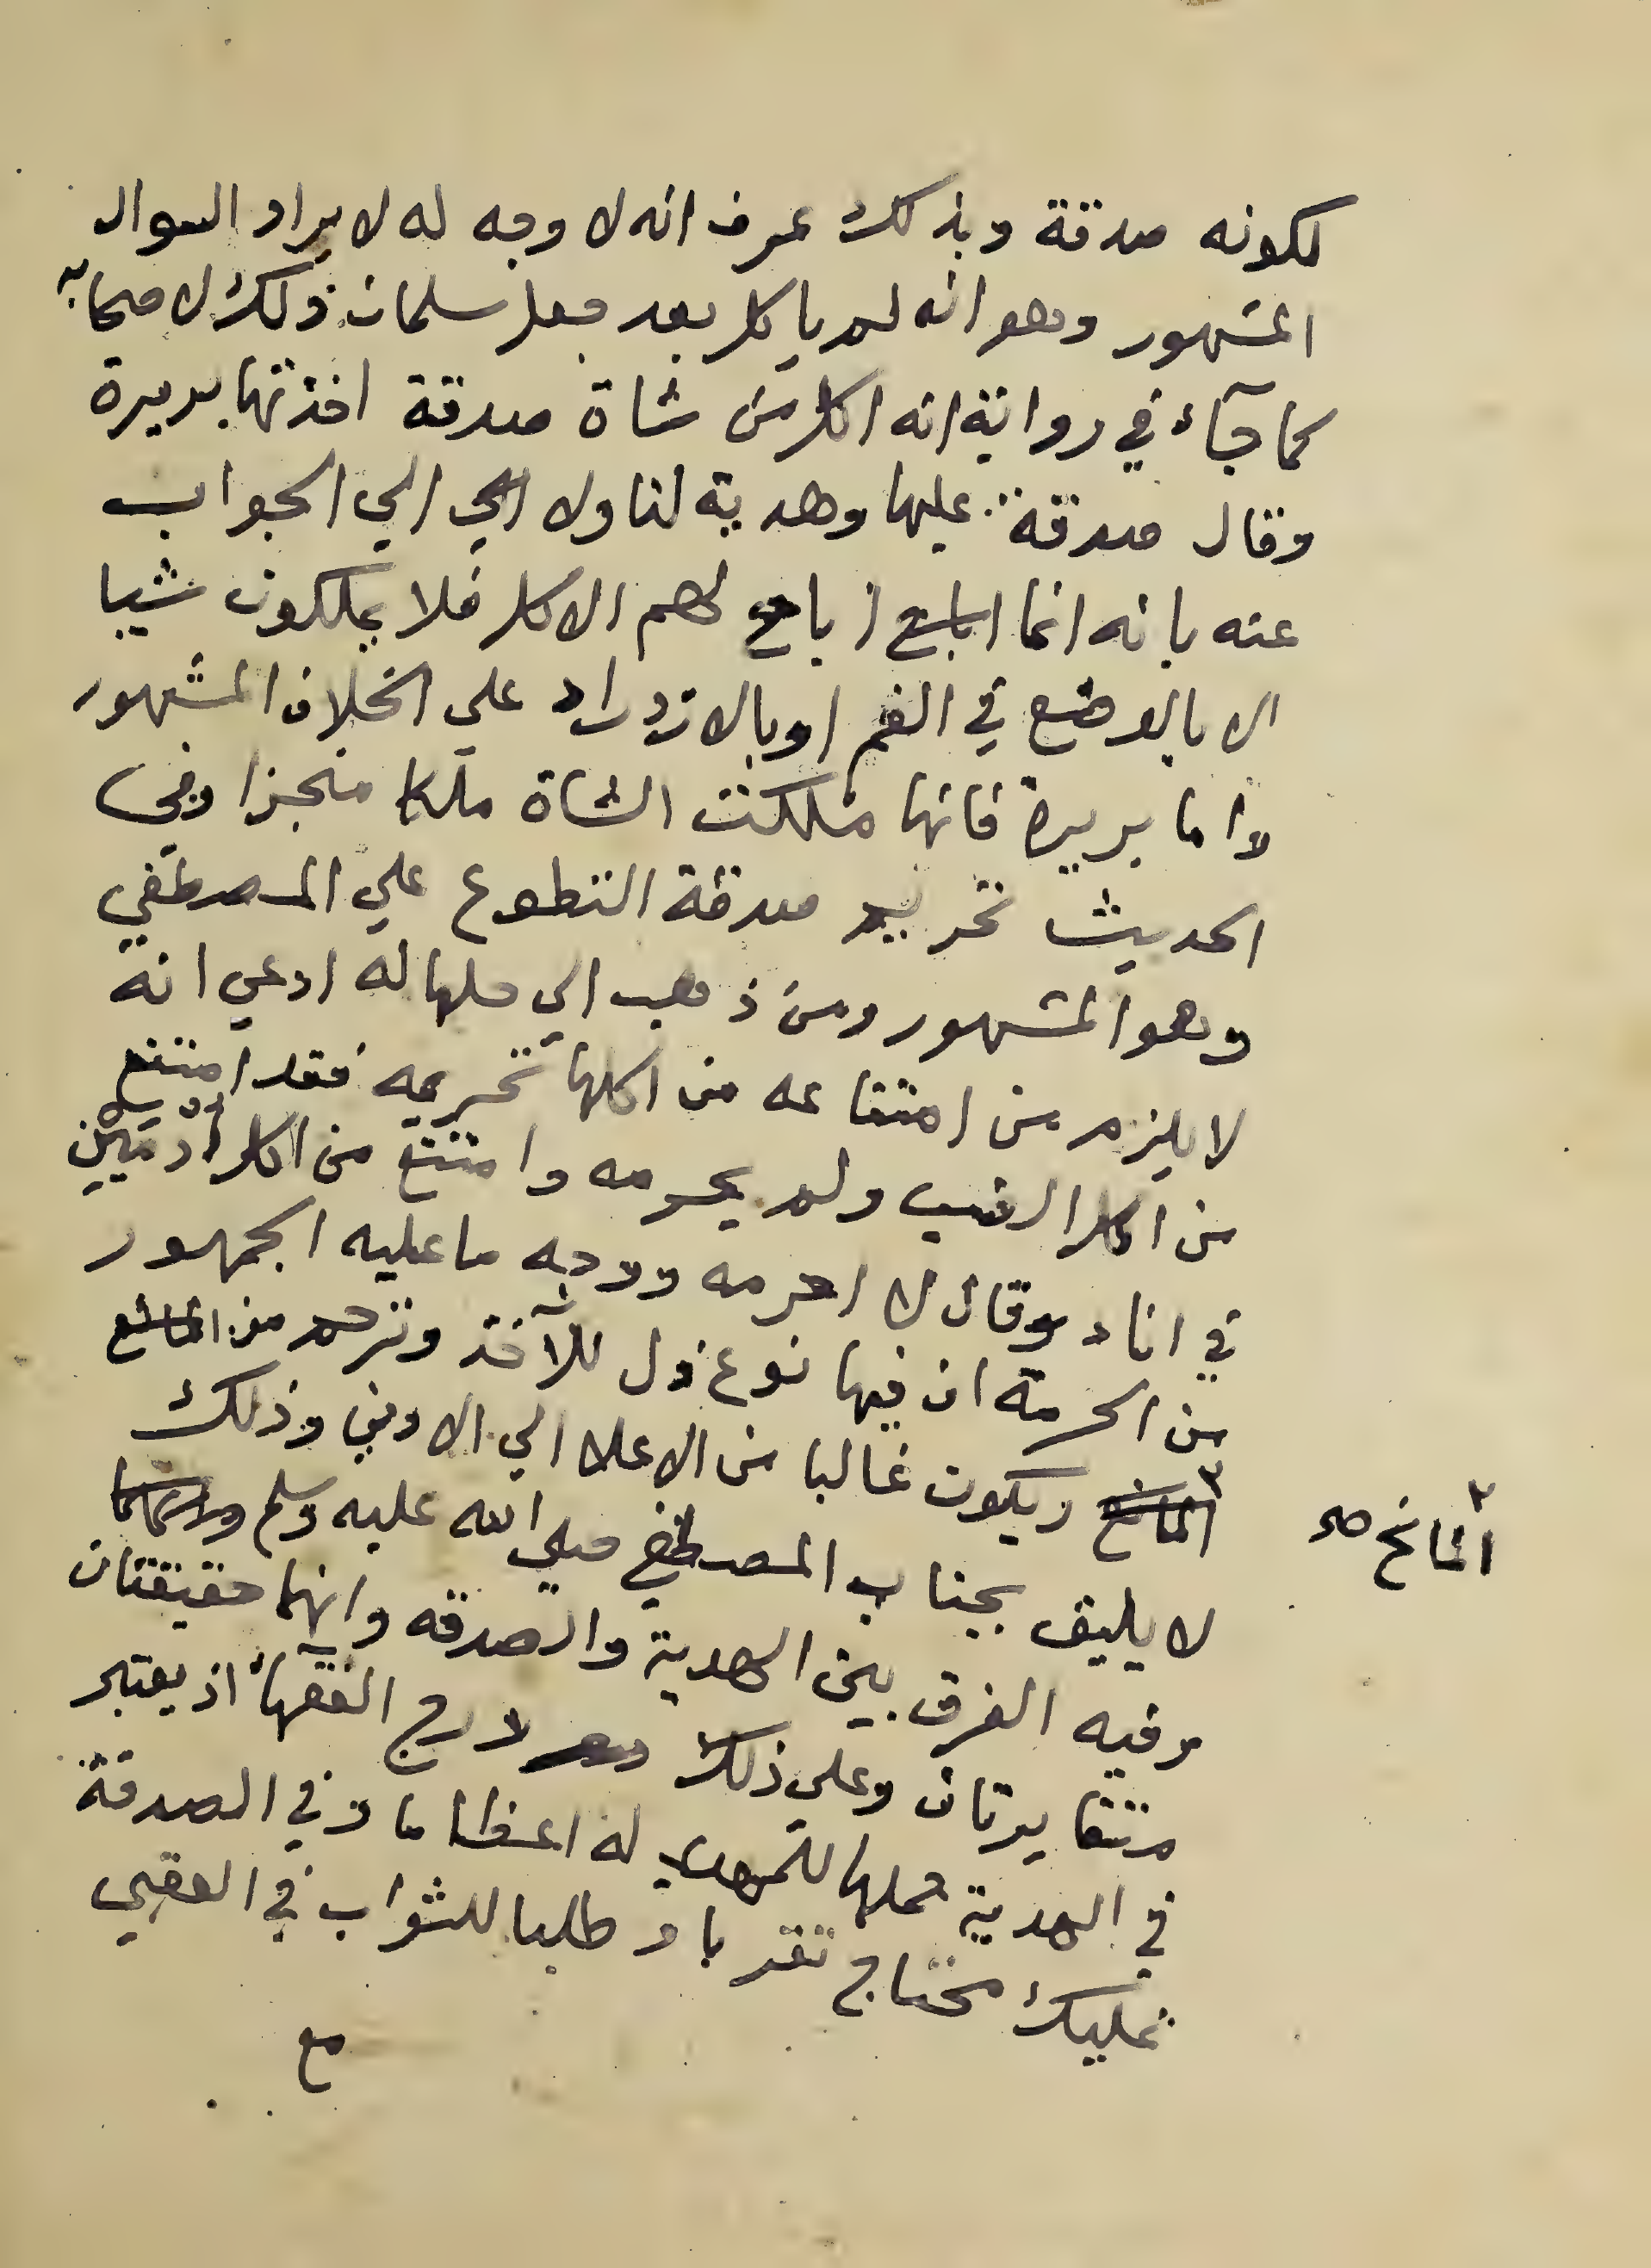 لكونه صدقة وبذلك عرف انه لا وجه له لايراد السوال
المشهور وهو انه لم ياكل بعد جعل سلمان ذلك لاصحابه
كما جآء في رواية انه اكل من شاة صدقة اخذتها بريرة
وقال صدقة عليها وهدية لنا ولا الي الجواب
عنه بانه انما اباح اباح لهم الاكل فلا يملكون شيا
الا بالوضع في الفم او بالازدراد علي الخلاف المشهور
واما بريرة فانها ملكت الشاة ملكا منجزا وفي
الحديث تحريم صدقة التطوع علي المصطفي
وهو المشهور ومن ذهب الي حلها له ادعي انه
لا يلزم من امتناعه من اكلها تحريمه فقد امتنع
من اكل الضب ولم يحرمه وامتنع من اكل أدمين
في اناء وقال لا احرمه ووجه ما عليه الجمهور
من الحرمة ان فيها نوع ذل للآخذ وترحم من المانع
المانع ويكون غالبا من الاعلا الي الادني وذلك
لا يليق بجناب المصطفي صلي الله عليه وسلم
وفيه الفرق بين الهدية والصدقه وانهما حقيقتان
متغايرتان وعلي ذلك درج الفقهآء اذ يعتبر
في الهدية حملها للمهدي له اعظاما وفي الصدقة
تمليك محتاج تقربا وطلبا للثواب في العقبي
مع
المانح صح